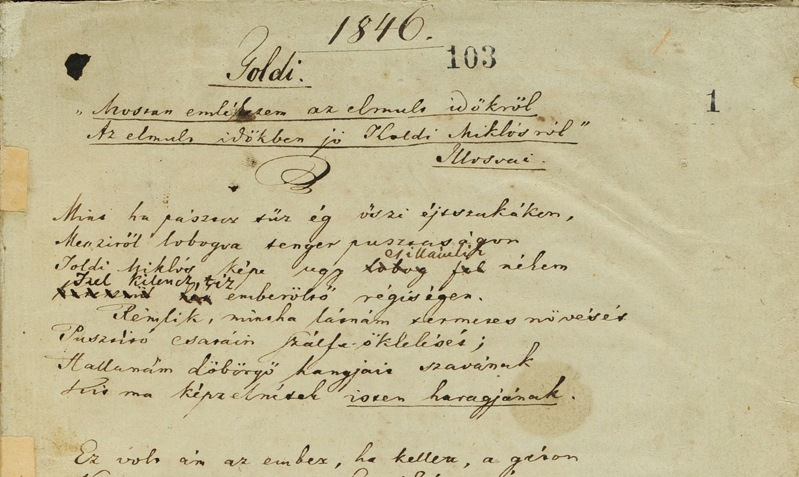 1846.
103
Toldi.
1
„Mostan emlékezem az elmult időkről
Az elmult időkben jó Tholdi Miklósról”
Ilosvai.
Mint ha pásztor tűz ég őszi éjtszakákon,
Messziről lobogva tenger pusztaságon
Toldi Miklós képe ugy lobog fel nékem
Csillámlik
Izel kilencz, tiz
emberöltő régiségen.
Rémlik, mintha látnám termetes növését
Pusztító csatáin szálfa-öklelését;
Hallanám dübörgő hangjait szavának
Kit ma képzelnétek isten haragjának.
Ez volt ám az ember, ha kellett, a gáton